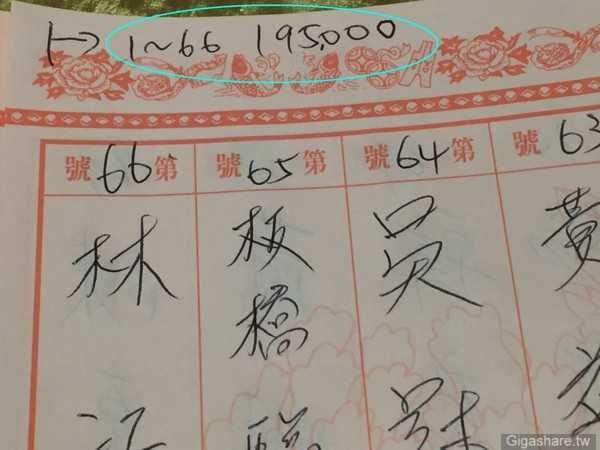 1~66 195,000
63號
黃
第64號
吳
第65號
板橋
第66號
林
Gigashare.tw